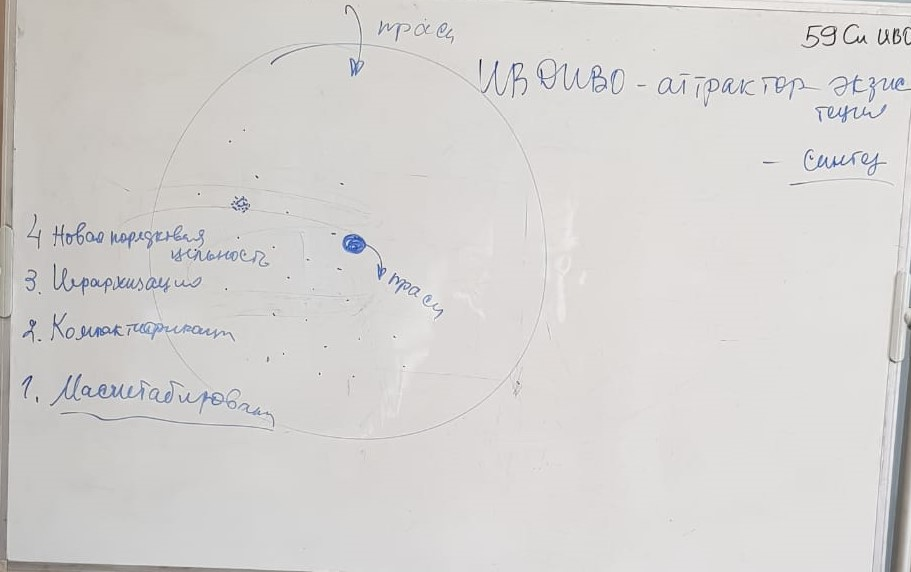 праси
59 Си ИВО
ИВДИВО - аттрактор экзис
тенции
- Синтез
4 Новая порядковая
цельность
3. Иерархизация
праси
2. Компактификация
1. Масштабирован